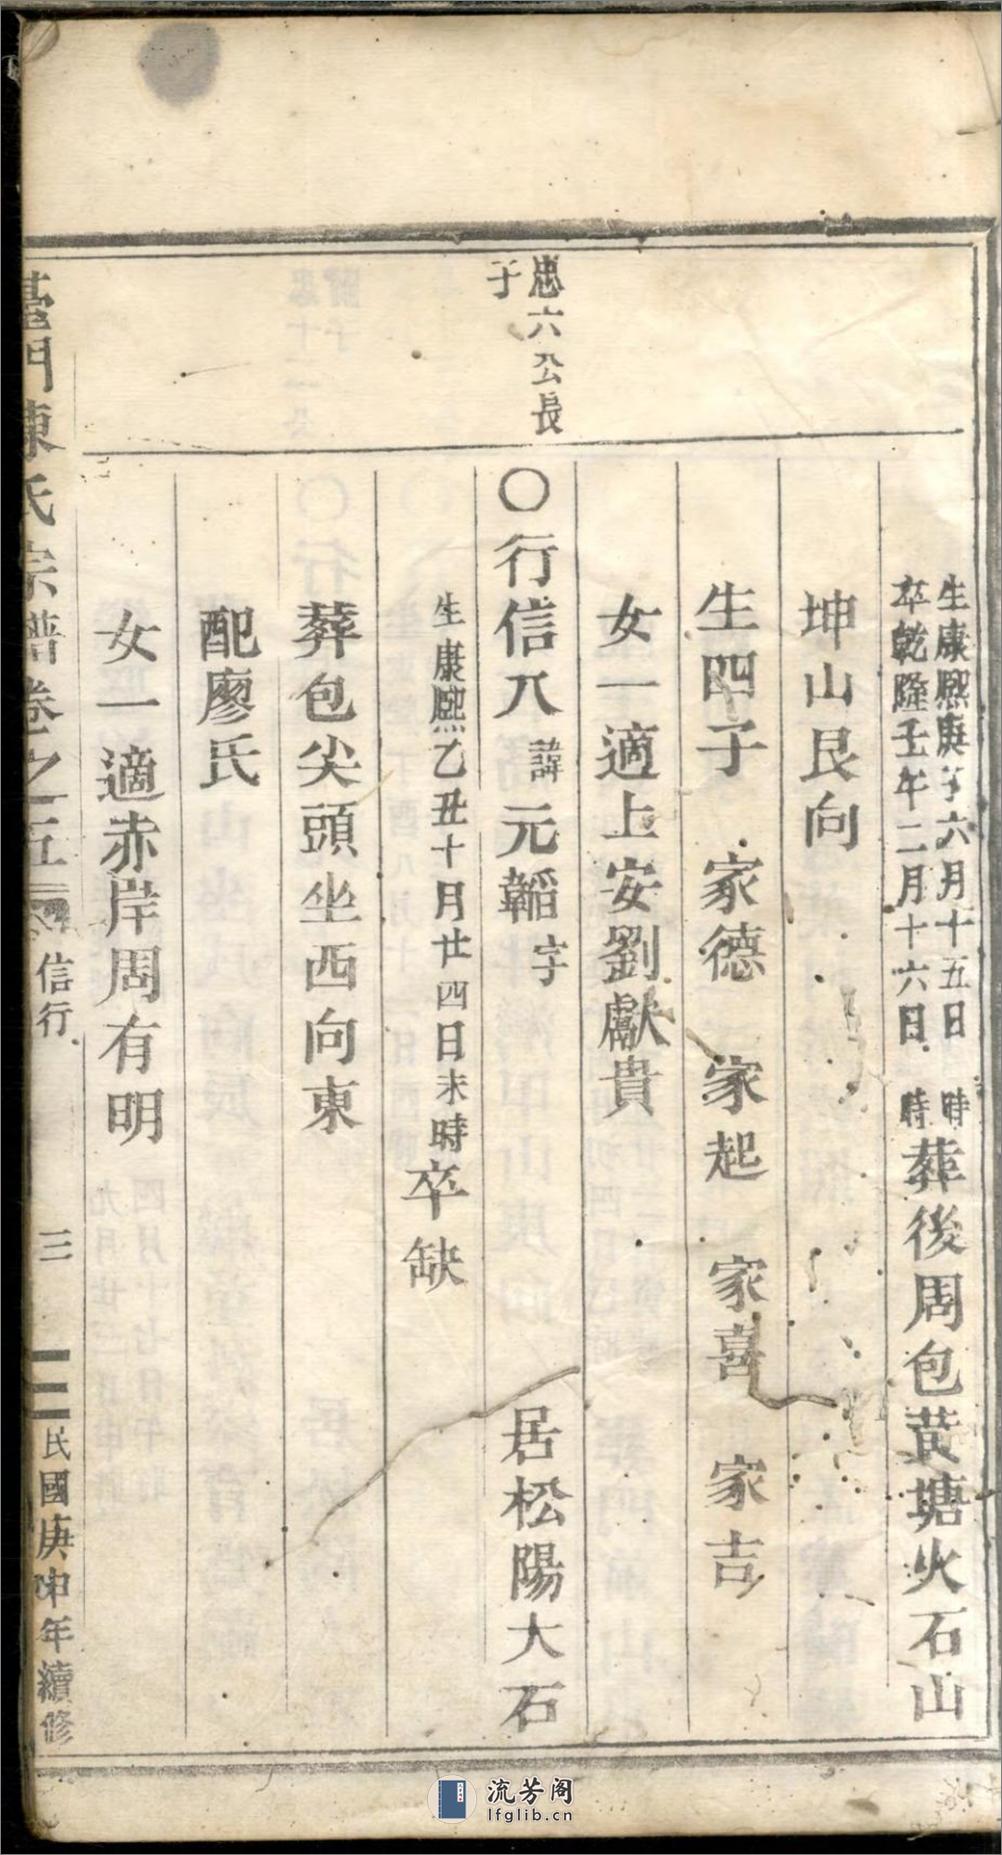 生康熙庚子六月十五日　時
卒乾隆壬午二月十六日　時
葬後周包黃塘火石山
坤山艮向
生四子　家德　家起　家喜　家吉
女一適上安劉獻貴
忠六公長
子
〇行信八諱元韜字　居松陽大石
生康熙乙丑十月廿四日未時卒缺
葬包尖頭坐西向東
配廖氏
女一適赤岸周有明
臺門陳氏宗譜卷之五　信行　三　民國庚申年續修
流芳阁
lfglib.cn